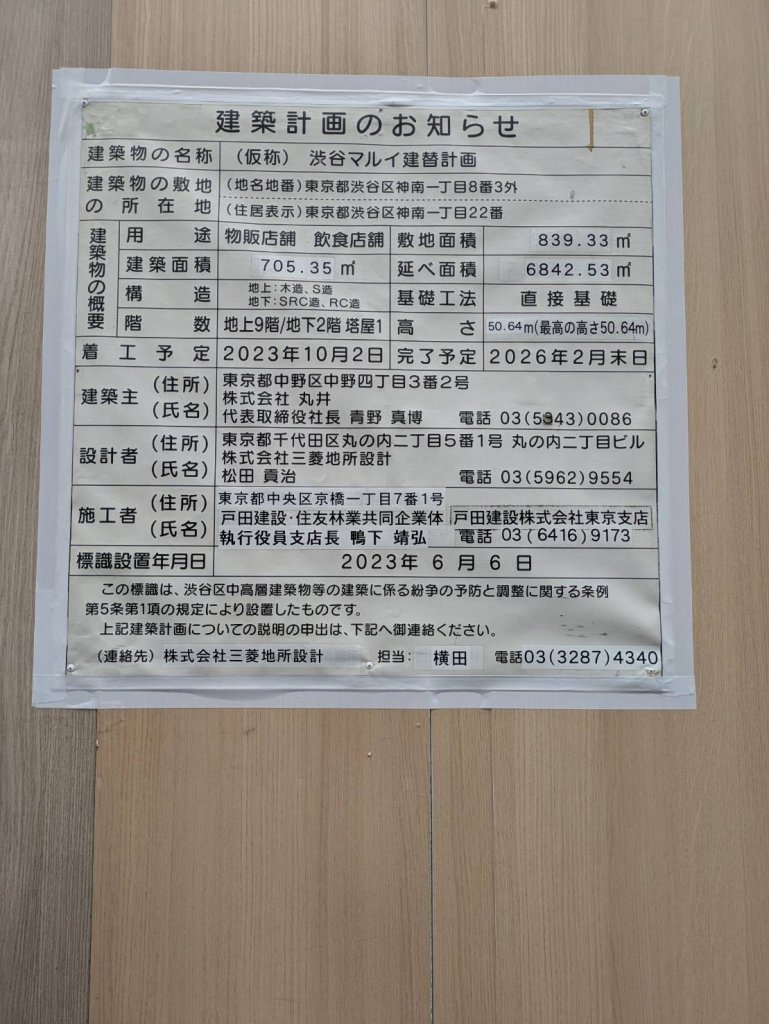 建築計画のお知らせ
建築物の名称 （仮称） 渋谷マルイ建替計画
建築物の敷地の所在地 （地名地番）東京都渋谷区神南一丁目8番3外
（住居表示）東京都渋谷区神南一丁目22番
建築物の概要 用途 物販店舗 飲食店舗 敷地面積 839.33㎡
建築面積 705.35㎡ 延べ面積 6842.53㎡
構造 地上：木造、S造 地下：SRC造、RC造 基礎工法 直接基礎
階数 地上9階/地下2階 塔屋1 高さ 50.64m(最高の高さ50.64m)
着工予定 2023年10月2日 完了予定 2026年2月末日
建築主 （住所） 東京都中野区中野四丁目3番2号
（氏名） 株式会社 丸井
代表取締役社長 青野 真博 電話 03(5343)0086
設計者 （住所） 東京都千代田区丸の内二丁目5番1号 丸の内二丁目ビル
（氏名） 株式会社三菱地所設計
松田 貢治 電話 03(5962)9554
施工者 （住所） 東京都中央区京橋一丁目7番1号
（氏名） 戸田建設・住友林業共同企業体 戸田建設株式会社東京支店
執行役員支店長 鴨下 靖弘 電話 03(6416)9173
標識設置年月日 2023年 6月 6日
この標識は、渋谷区中高層建築物等の建築に係る紛争の予防と調整に関する条例
第5条第1項の規定により設置したものです。
上記建築計画についての説明の申出は、下記へ御連絡ください。
（連絡先）株式会社三菱地所設計 担当： 横田 電話03(3287)4340